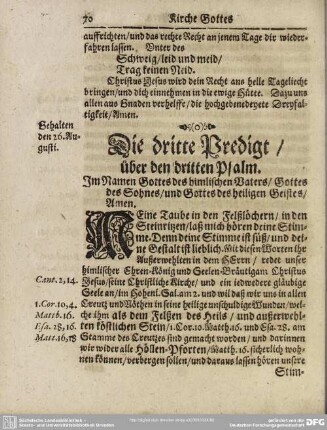 70 Kirche Gottes
auffrichten/ und das rechte Recht an jenem Tage dir wieder-
fahren lassen. Unter des
Schweig/ leid und meid/
Trag keinen Neid.
Christus Jesus wird dein Recht ans helle Tagelicht
bringen/ und dich einnehmen in die ewige Hütte. Dazu uns
allen aus Gnaden verhelffe/ die hochgebenedeyete Dreyfal-
tigkeit/ Amen.
Gehalten
den 26. Au-
gusti.
Die dritte Predigt/
über den dritten Psalm.
Im Namen Gottes des himlischen Vaters/ Gottes
des Sohnes/ und Gottes des heiligen Geistes/
Amen.
MEine Taube in den Felßlöchern/ in den
Steinritzen/ laß mich hören deine Stim-
me. Denn deine Stimme ist süß/ und dei-
ne Gestalt ist lieblich. Mit diesen Worten ihr
Außerwehlten in dem HErrn/ redet unser
himlischer Ehren-König und Seelen-Bräutigam Christus
Cant. 2, 14. Jesus/ seine Christliche Kirche/ und ein iedwedere gläubige
Seele an/ im Hohenl. Sal. am 2. und wil daß wir uns in allen
1. Cor. 10, 4. Creutz und Nöthen in seine heilige unschuldige Wunden/ wel-
Matth. 16. che ihm als dem Felßen des Heils/ und außerwehl-
Esa. 28, 16. ten köstlichen Stein/ 1. Cor. 10. Matth. 16. und Esa. 28. am
Matt. 16, 18 Stamme des Creutzes sind gemacht worden/ und darinnen
wir wider alle Höllen-Pforten/ Matth. 16. sicherlich woh-
nen können/ verbergen sollen/ und daraus lassen hören unsere
Stim-